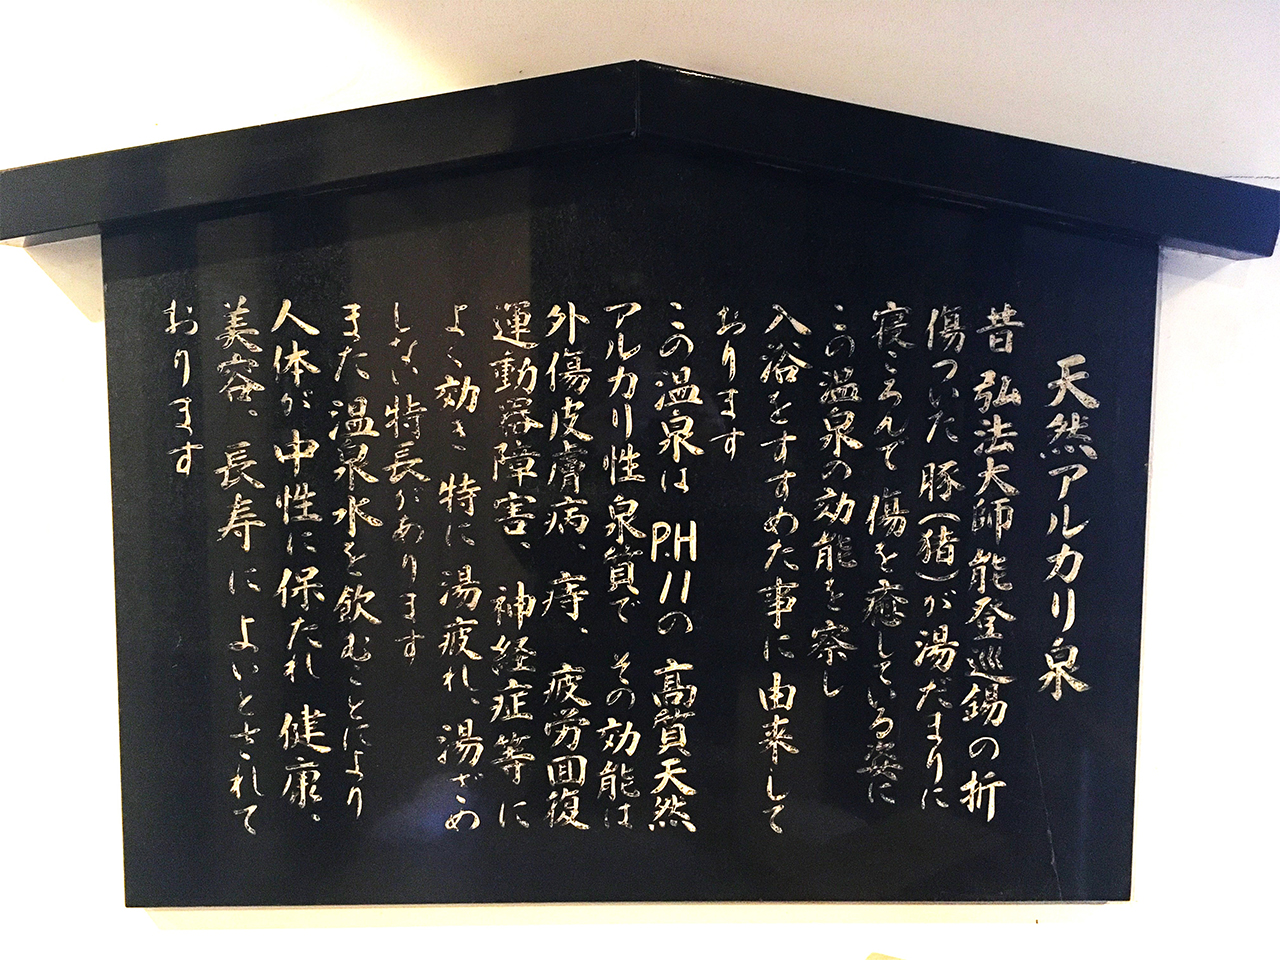 天然アルカリ泉
昔 弘法大師能登巡錫の折
傷ついた 豚(猪)が湯だまりに
寝ころんで 傷を癒している姿に
この温泉の効能を察し
入浴をすすめた事に由来して
おります
この温泉は P.H11の 高質天然
アルカリ性泉質で その効能は
外傷皮膚病、痔、疲労回復
運動器障害、神経症等に
よく効き 特に湯疲れ、湯ざめ
しない特長があります
また 温泉水を飲むことにより
人体が中性に保たれ 健康、
美容、長寿に よいとされて
おります